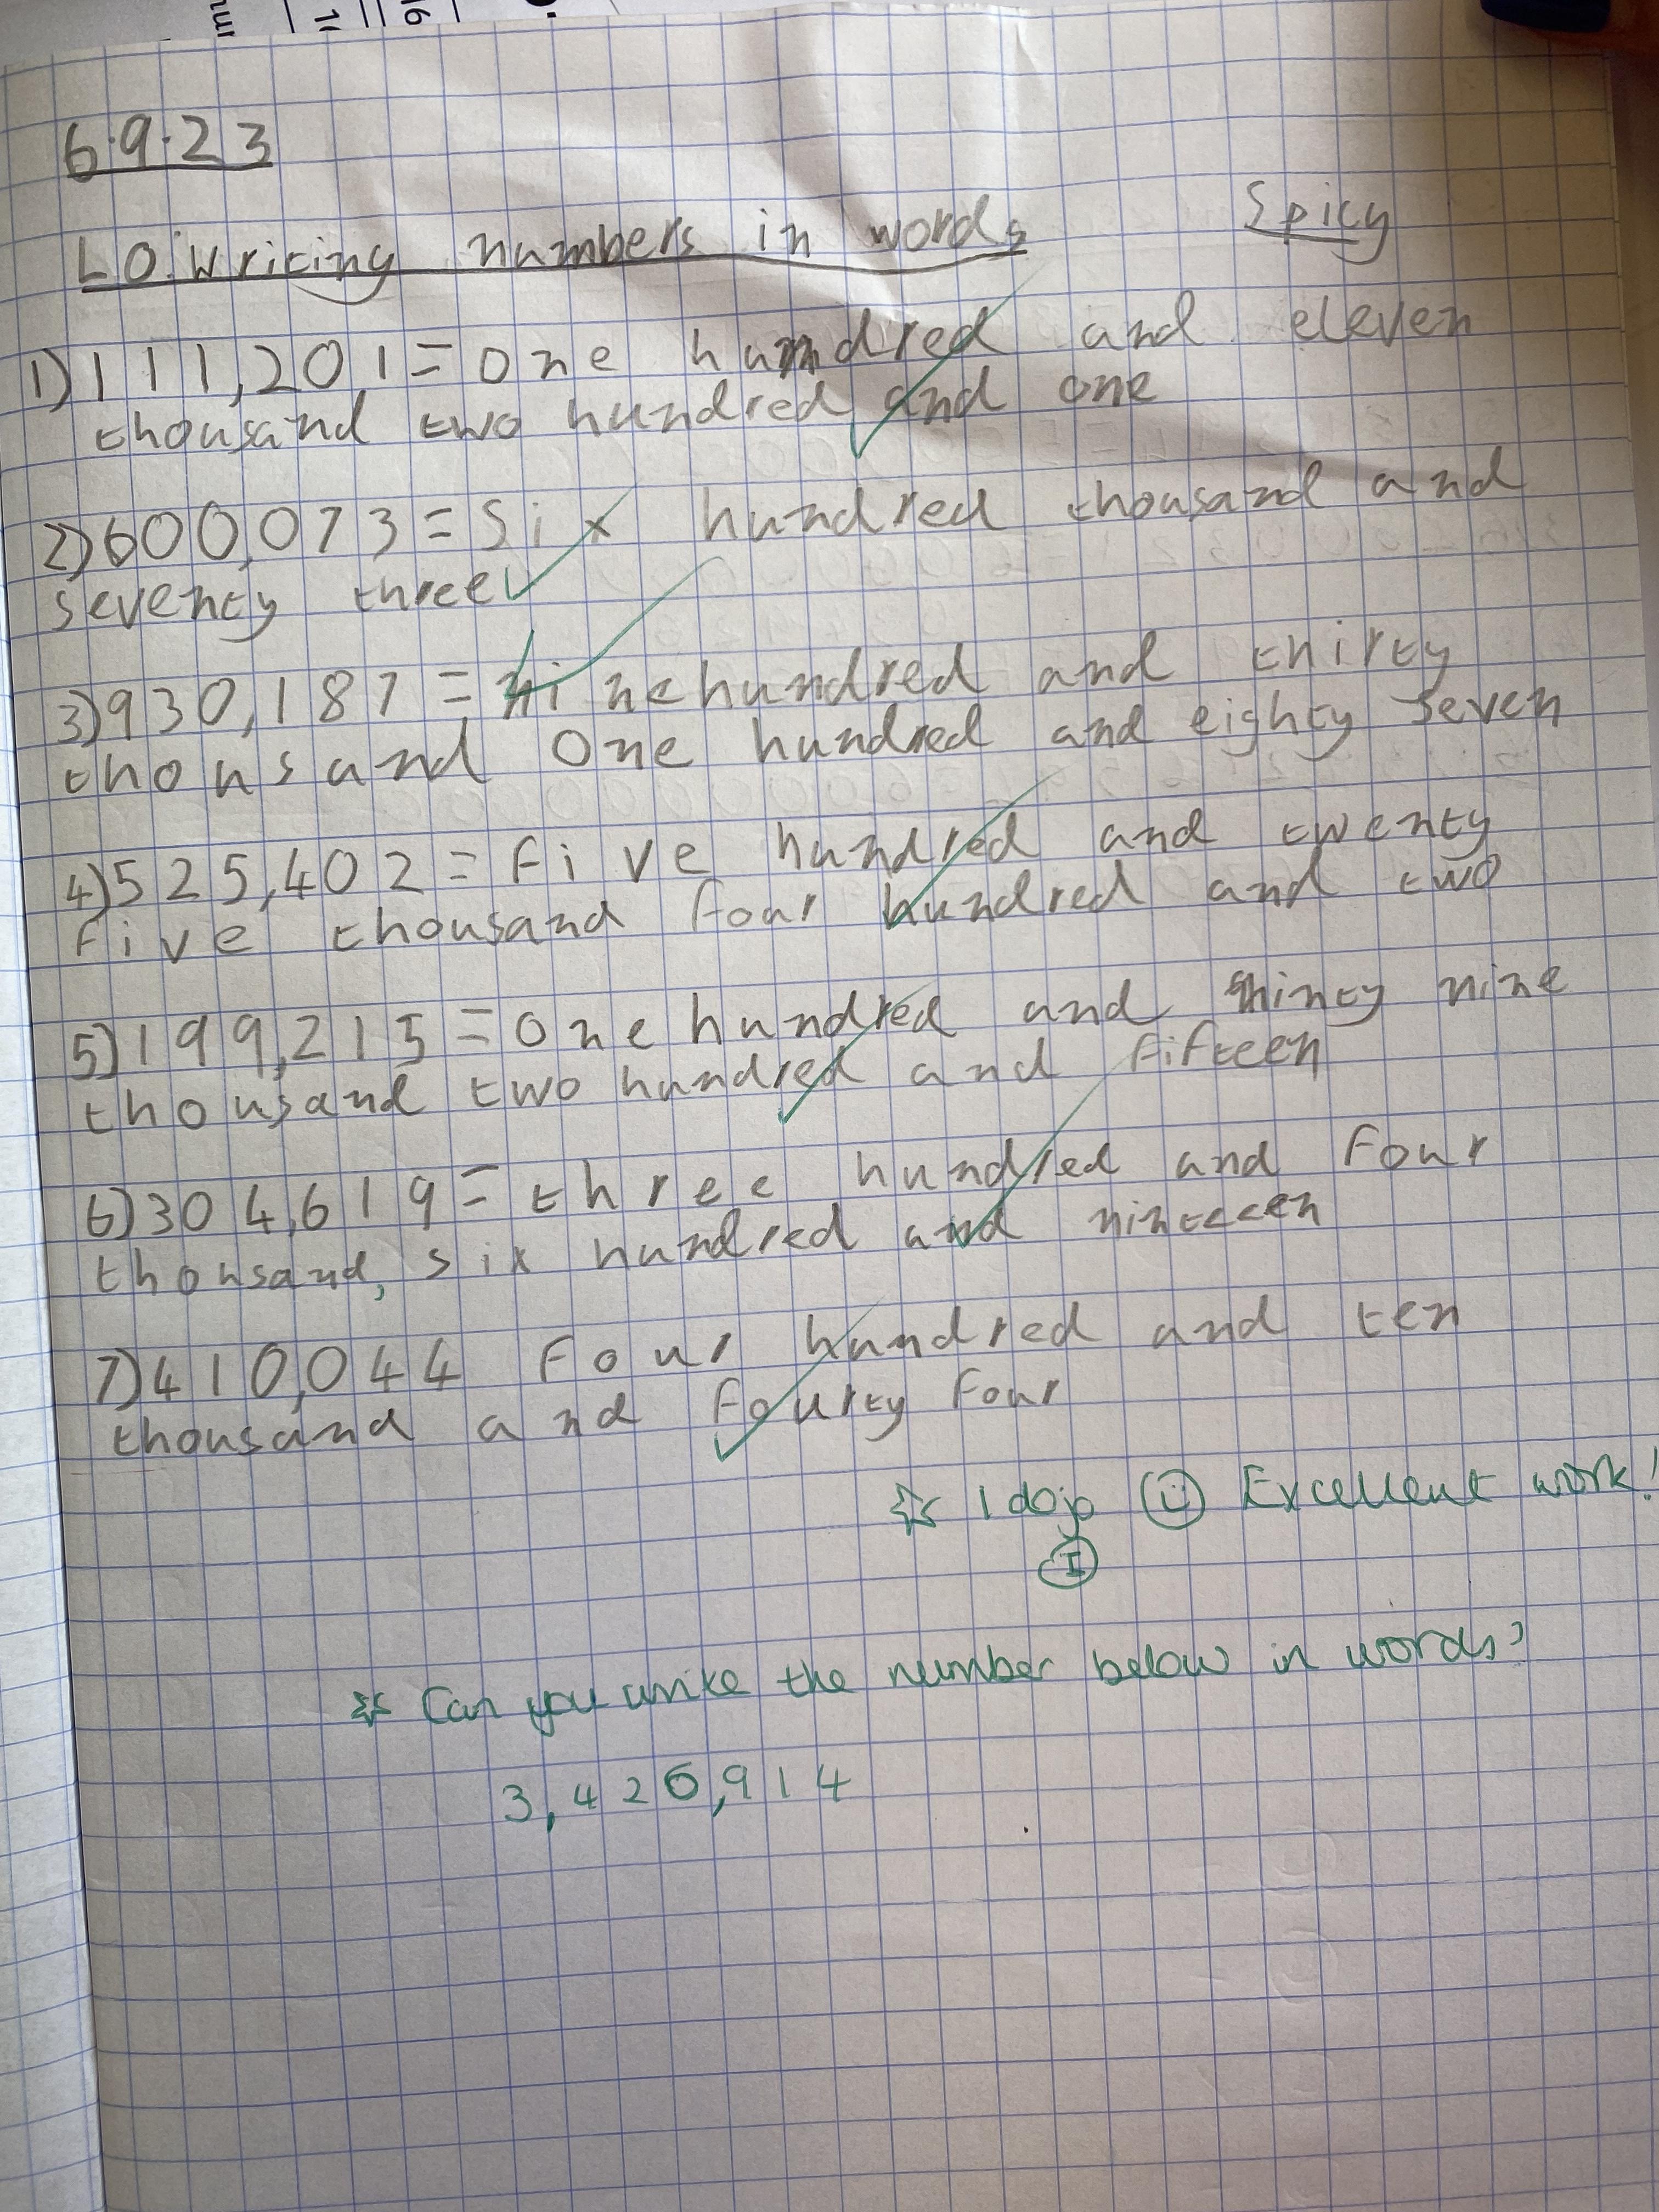 6.9.23
LO: Writing numbers in words
Spicy
1) 111,201 = one hundred and eleven
thousand two hundred and one
2) 600,073 = Six hundred thousand and
seventy three
3) 930,187 = nine hundred and thirty
thousand One hundred and eighty seven
4) 525,402 = five hundred and twenty
five thousand four hundred and two
5) 199,215 = One hundred and ninty nine
thousand two hundred and fifteen
6) 304,619 = three hundred and four
thousand, six hundred and ninteeen
7) 410,044 Four hundred and ten
thousand and fourty four
1 dojo Excellent work!
I
Can you write the number below in words?
3,426,914